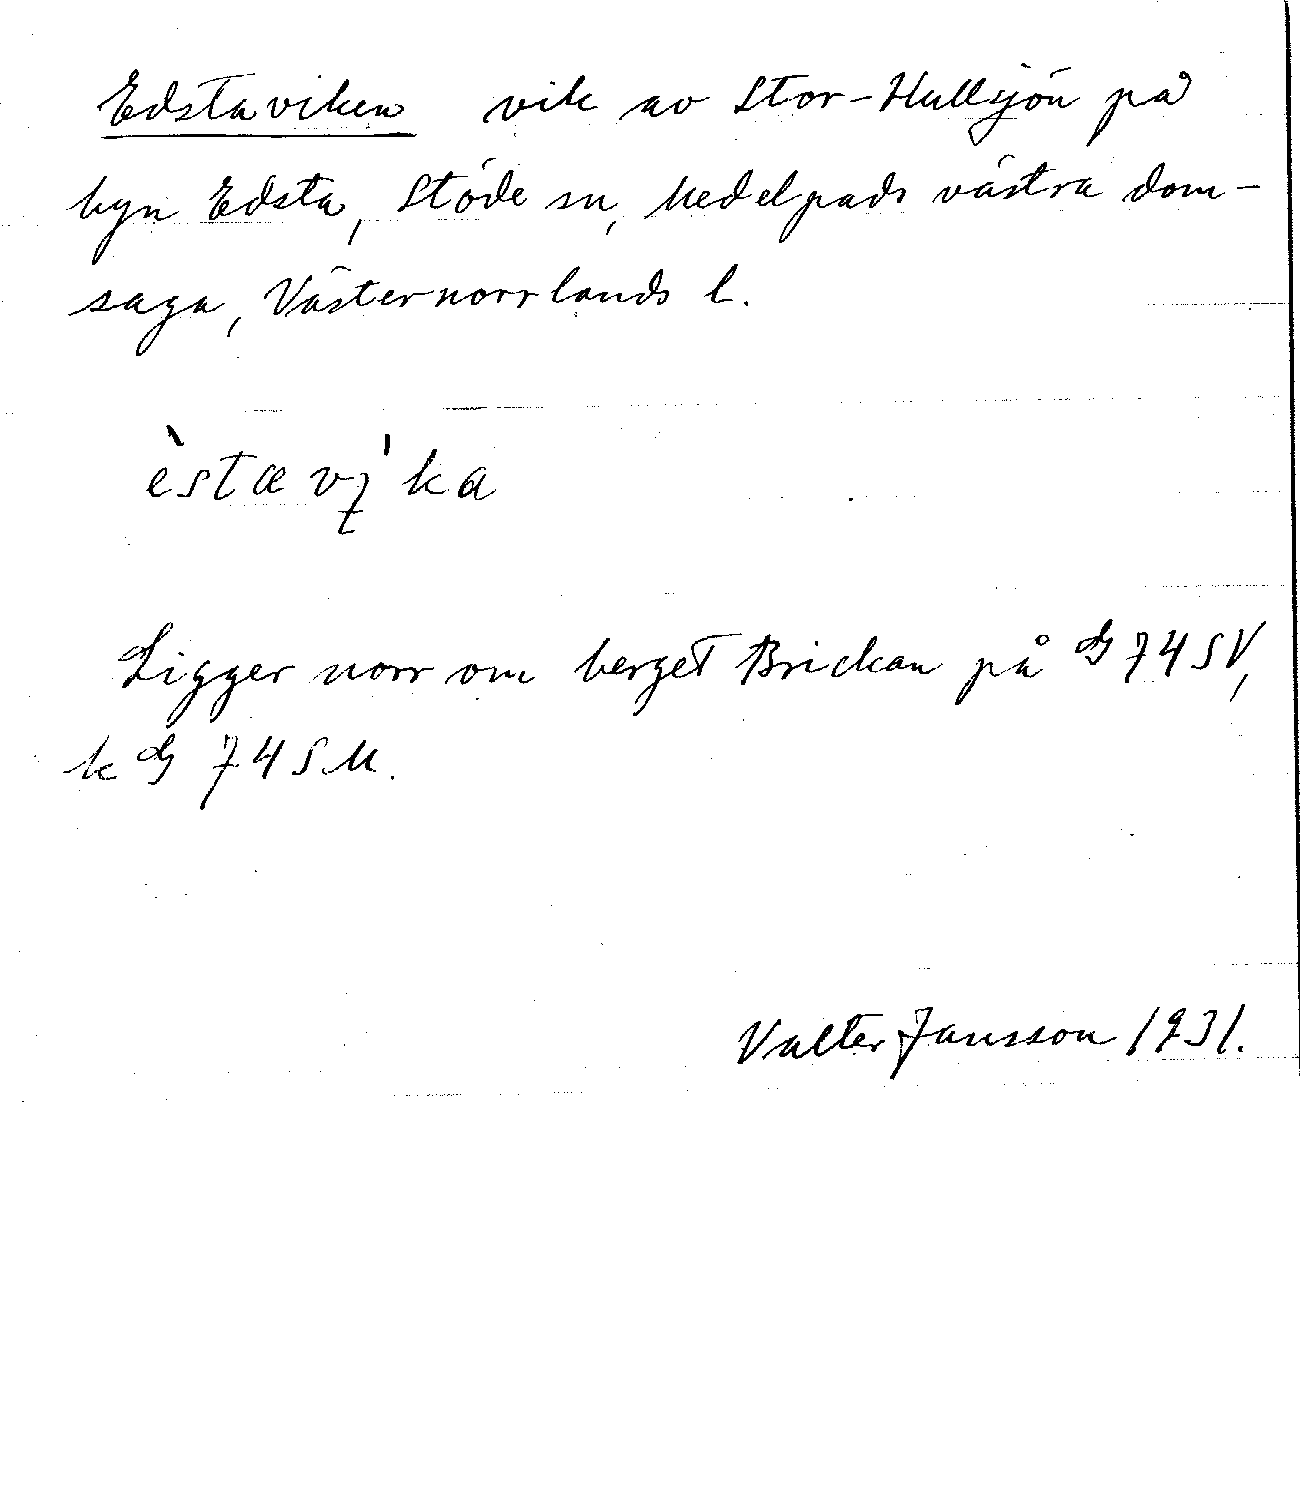 Edstaviken vik av Stor-Hullsjön på
byn Edsta, Stöde sn, Medelpads västra dom-
saga, Västernorrlands l.
èstævı̨ka
Ligger norr om berget Brickan på G 74 SV,
k G 74 SM.
Valter Jansson 1931.